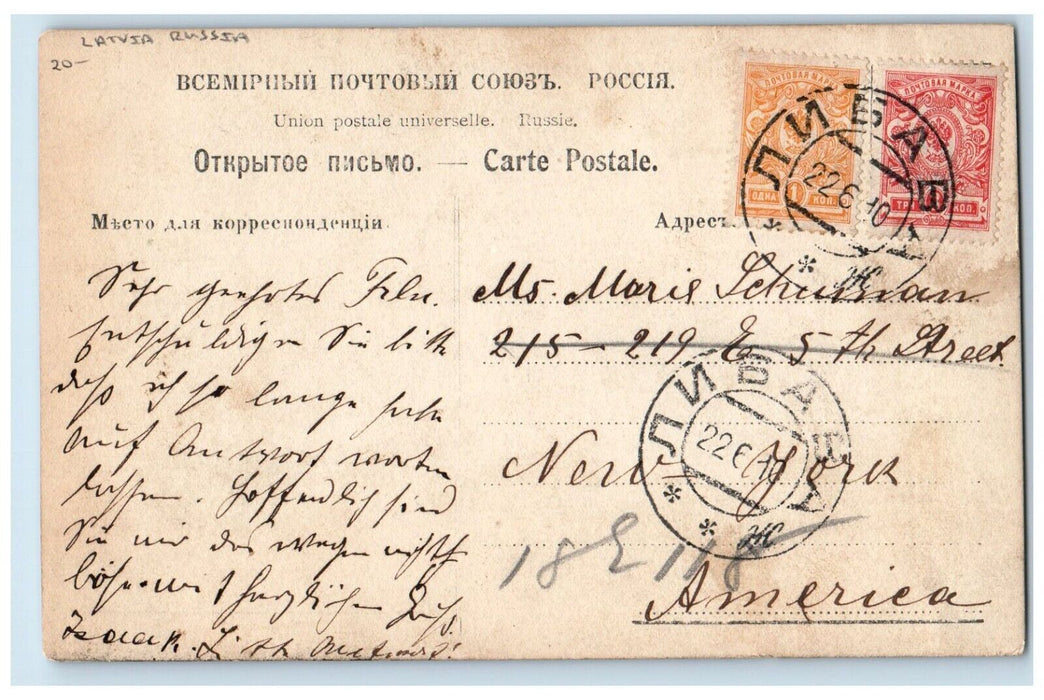 LATVIA RUSSIA
20-
ВСЕМІРНЫЙ ПОЧТОВЫЙ СОЮЗЪ. РОССІЯ.
Union postale universelle. Russie.
Открытое письмо. — Carte Postale.
Мѣсто для корреспонденціи.
Адресъ
ПОЧТОВАЯ МАРКА
1
ОДНА КОП.
ПОЧТОВАЯ МАРКА
КОП.
ЛИБАВА
22 6 10
Ж
Sehr geehrtes Frln.
Entschuldigen Sie bitte
daß ich so lange habe
auf Antwort warten
lassen. Hoffentlich sind
Sie mir deswegen nicht
böse. mit herzlichen Gruß
Isaak.
Ms. Marie Schuman
215-219 E 5th Street
New-York
America
ЛИБАВА
22 6 10
Ж
18 E 118